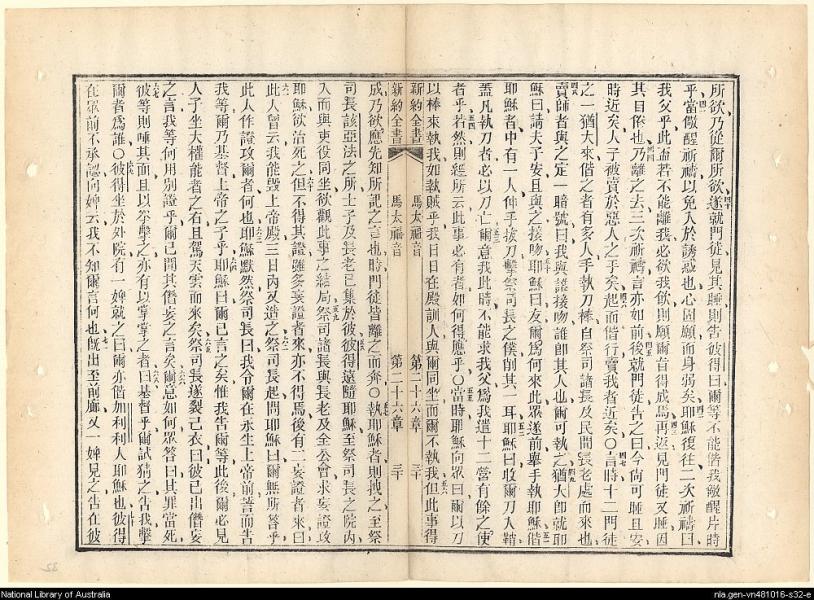 所欲乃從爾所欲遂就門徒見其睡則吿彼得曰爾等不能偕我儆醒片時
乎當儆醒祈禱以免入於誘惑也心固願而身弱矣耶穌復往二次祈禱曰
我父乎此盃若不能離我必欲我飲則願爾旨得成焉再返見門徒又睡因
其目倦也乃離之去三次祈禱言亦如前後就門徒吿之曰今尙可睡且安
時近矣人子被賣於惡人之手矣起而偕行賣我者近矣〇言時十二門徒
之一猶大來偕之者有多人手執刀棒自祭司諸長及民間長老處而來也
賣師者與之定一暗號曰我與接吻誰卽其人也爾可執之猶大卽就耶
穌曰請夫子安且與之接吻耶穌曰友爾爲何來此眾遂前舉手執耶穌偕
耶穌者中有一人伸手拔刀擊祭司長之僕削其一耳耶穌曰收爾刀入鞘
蓋凡執刀者必以刀亡爾意我此時不能求我父爲我遣十二營有餘之使
者乎若然則經所云此事必有者如何得應乎〇當時耶穌向眾曰爾以刀
以棒來執我如執賊乎我日日在殿訓人與爾同坐而爾不執我但此事得
新約全書 馬太福音 第二十六章 三十
新約全書 馬太福音 第二十六章 三十
成乃欲應先知所記之言也時門徒皆離之而奔〇執耶穌者則拽之至祭
司長該亞法之所士子及長老已集於彼彼得遠隨耶穌至祭司長之院內
入而與吏役同坐欲觀此事之結局祭司諸長與長老及全公會求妄證攻
耶穌欲治死之但不得其證雖多妄證者來亦不得焉後有二妄證者來曰
此人曾云我能毀上帝殿三日內又造之祭司長起問耶穌曰爾無所答乎
此人作證攻爾者何也耶穌默然祭司長曰我令爾在永生上帝前誓而吿
我等爾乃基督上帝之子乎耶穌曰爾已言之矣惟我吿爾等此後爾必見
人子坐大權能者之右且駕天雲而來矣祭司長遂裂己衣曰彼已出僭妄
之言我等何用別證乎爾已聞其僭妄之言矣爾意如何眾答曰其罪當死
彼等則唾其面且以拳擊之亦有以掌掌之者曰基督乎爾試猜之吿我擊
爾者爲誰〇彼得坐於外院有一婢就之曰爾亦偕加利利人耶穌也彼得
在眾前不承認向婢云我不知爾言何也旣出至前廊又一婢見之吿在彼
National Library of Australia
nla.gen-vn481016-s32-e